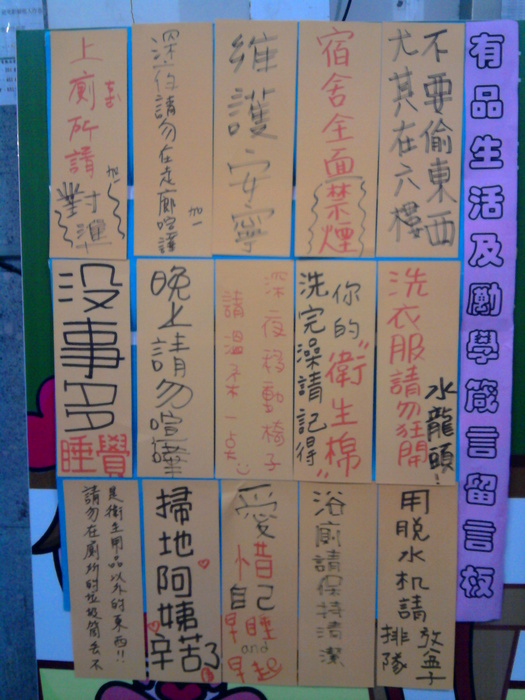 有品生活及勵學箴言留言板
不要偷東西
尤其在六樓
宿舍全面禁煙
維護安寧
深夜請勿在走廊喧嘩
加一
上廁所請
對準
加一
洗衣服請勿狂開
水龍頭!!
你的"衛生棉"
洗完澡請記得
深夜移動椅子
請溫柔一点
晚上請勿喧嘩
沒事多
睡覺
用脫水机請
放盒子
排隊
浴廁請保持清潔
愛惜自己
早睡
and
早起
掃地阿姨
辛苦了
請勿在廁所的垃圾筒丟不
是衛生用品以外的東西!!